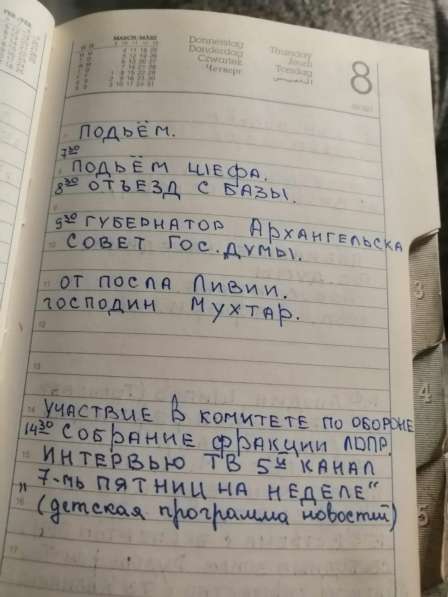 MARCH/MARS
Donnerstag
Donderdag
Czwartek
Четверг
Thursday
Jeudi
8
ПОДЬЁМ.
7 30
ПОДЬЁМ ШЕФА.
8 30 ОТЪЕЗД С БАЗЫ.
9 30 ГУБЕРНАТОР АРХАНГЕЛЬСКА
10 СОВЕТ ГОС. ДУМЫ.
11 ОТ ПОСЛА ЛИВИИ.
ГОСПОДИН МУХТАР.
12
13
14 УЧАСТИЕ В КОМИТЕТЕ ПО ОБОРОНЕ
14 30 СОБРАНИЕ ФРАКЦИИ ЛДПР.
15 ИНТЕРВЬЮ ТВ 5ый КАНАЛ
„7-МЬ ПЯТНИЦ НА НЕДЕЛЕ“
16 (детская программа новостей)
17
3
4
5